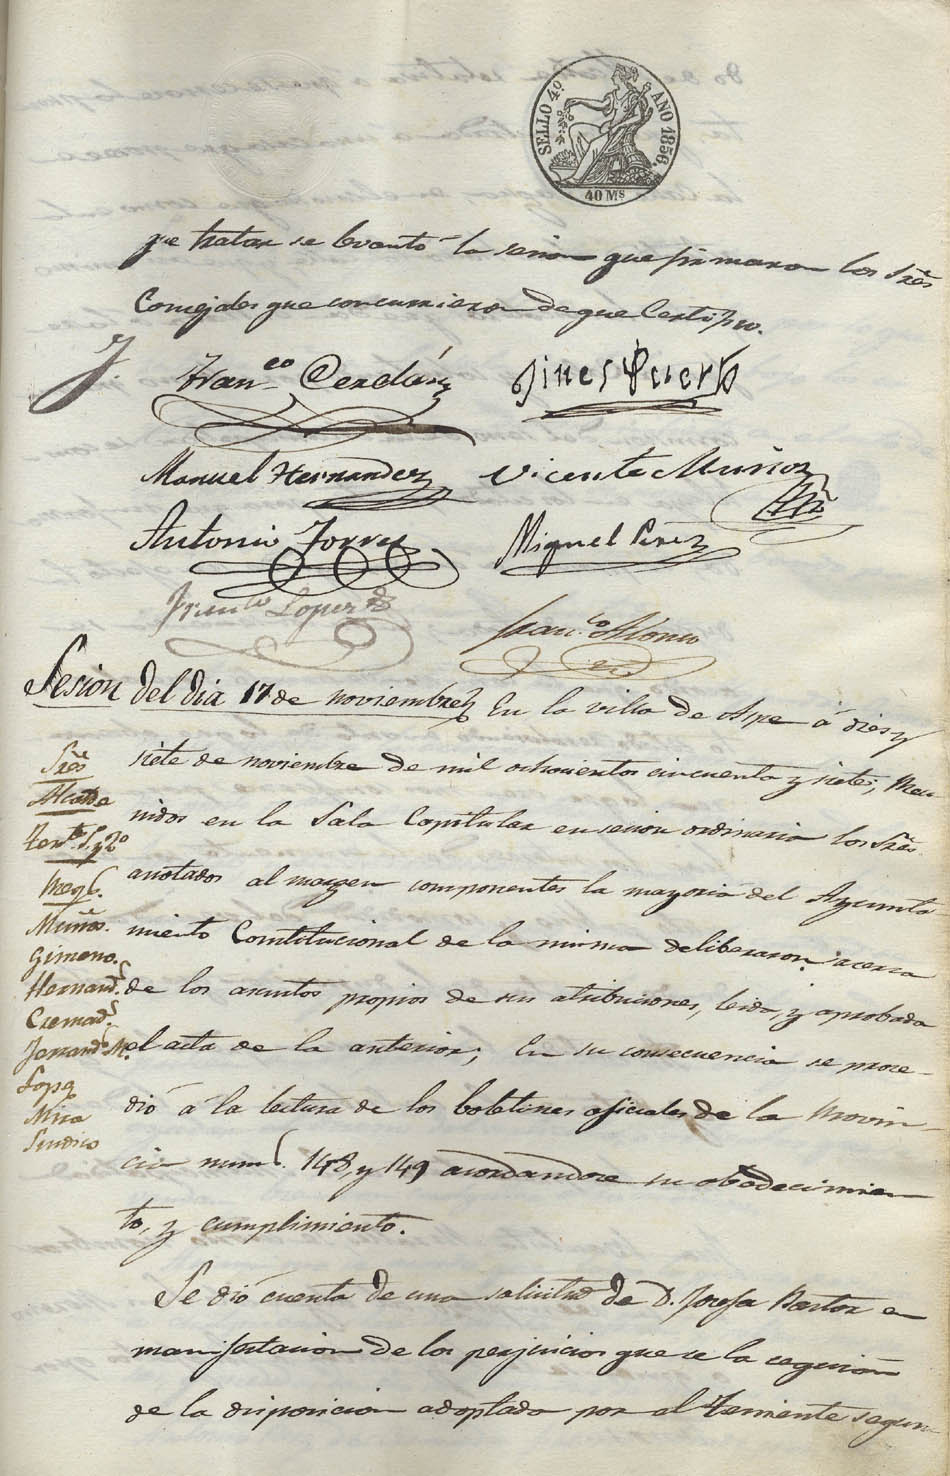 SELLO 4º AÑO 1856.
40 Ms
que tratar se levantó la sesion que firmaron los Sres
Concejales que concurrieron de que Certifico.
Franco Cerdán Gines Puerto
Manuel Hernandez Vicente Muñoz
Antonio Torres Miguel Perez
Franco Lopez
Franco Alonso
Sesion del dia 17 de noviembre En la villa de Aspe á diez y
siete de noviembre de mil ochocientos cincuenta y siete, Reu
nidos en la Sala Capitular en sesion ordinaria los Sres
anotados al margen componentes la mayoria del Ayunta
miento Constitucional de la misma deliberaron acerca
de los asuntos propios de sus atribuciones, leida, y aprobada
el acta de la anterior; En su consecuencia se proce-
dió á la lectura de los boletines oficiales de la Provin-
cia nums. 148, y 149 acordandose su obedecimien
to, y cumplimiento.
Sres
Alcalde
Tente 1º y 2º
Regs.
Muñoz.
Gimeno.
Hernandz
Cremads.
Lopez
Mira
Sindico
Se dió cuenta de una solicitud de D. Josefa Pastor en
manifestacion de los perjuicios que se la seguian
de la disposicion adoptada por el Teniente segun